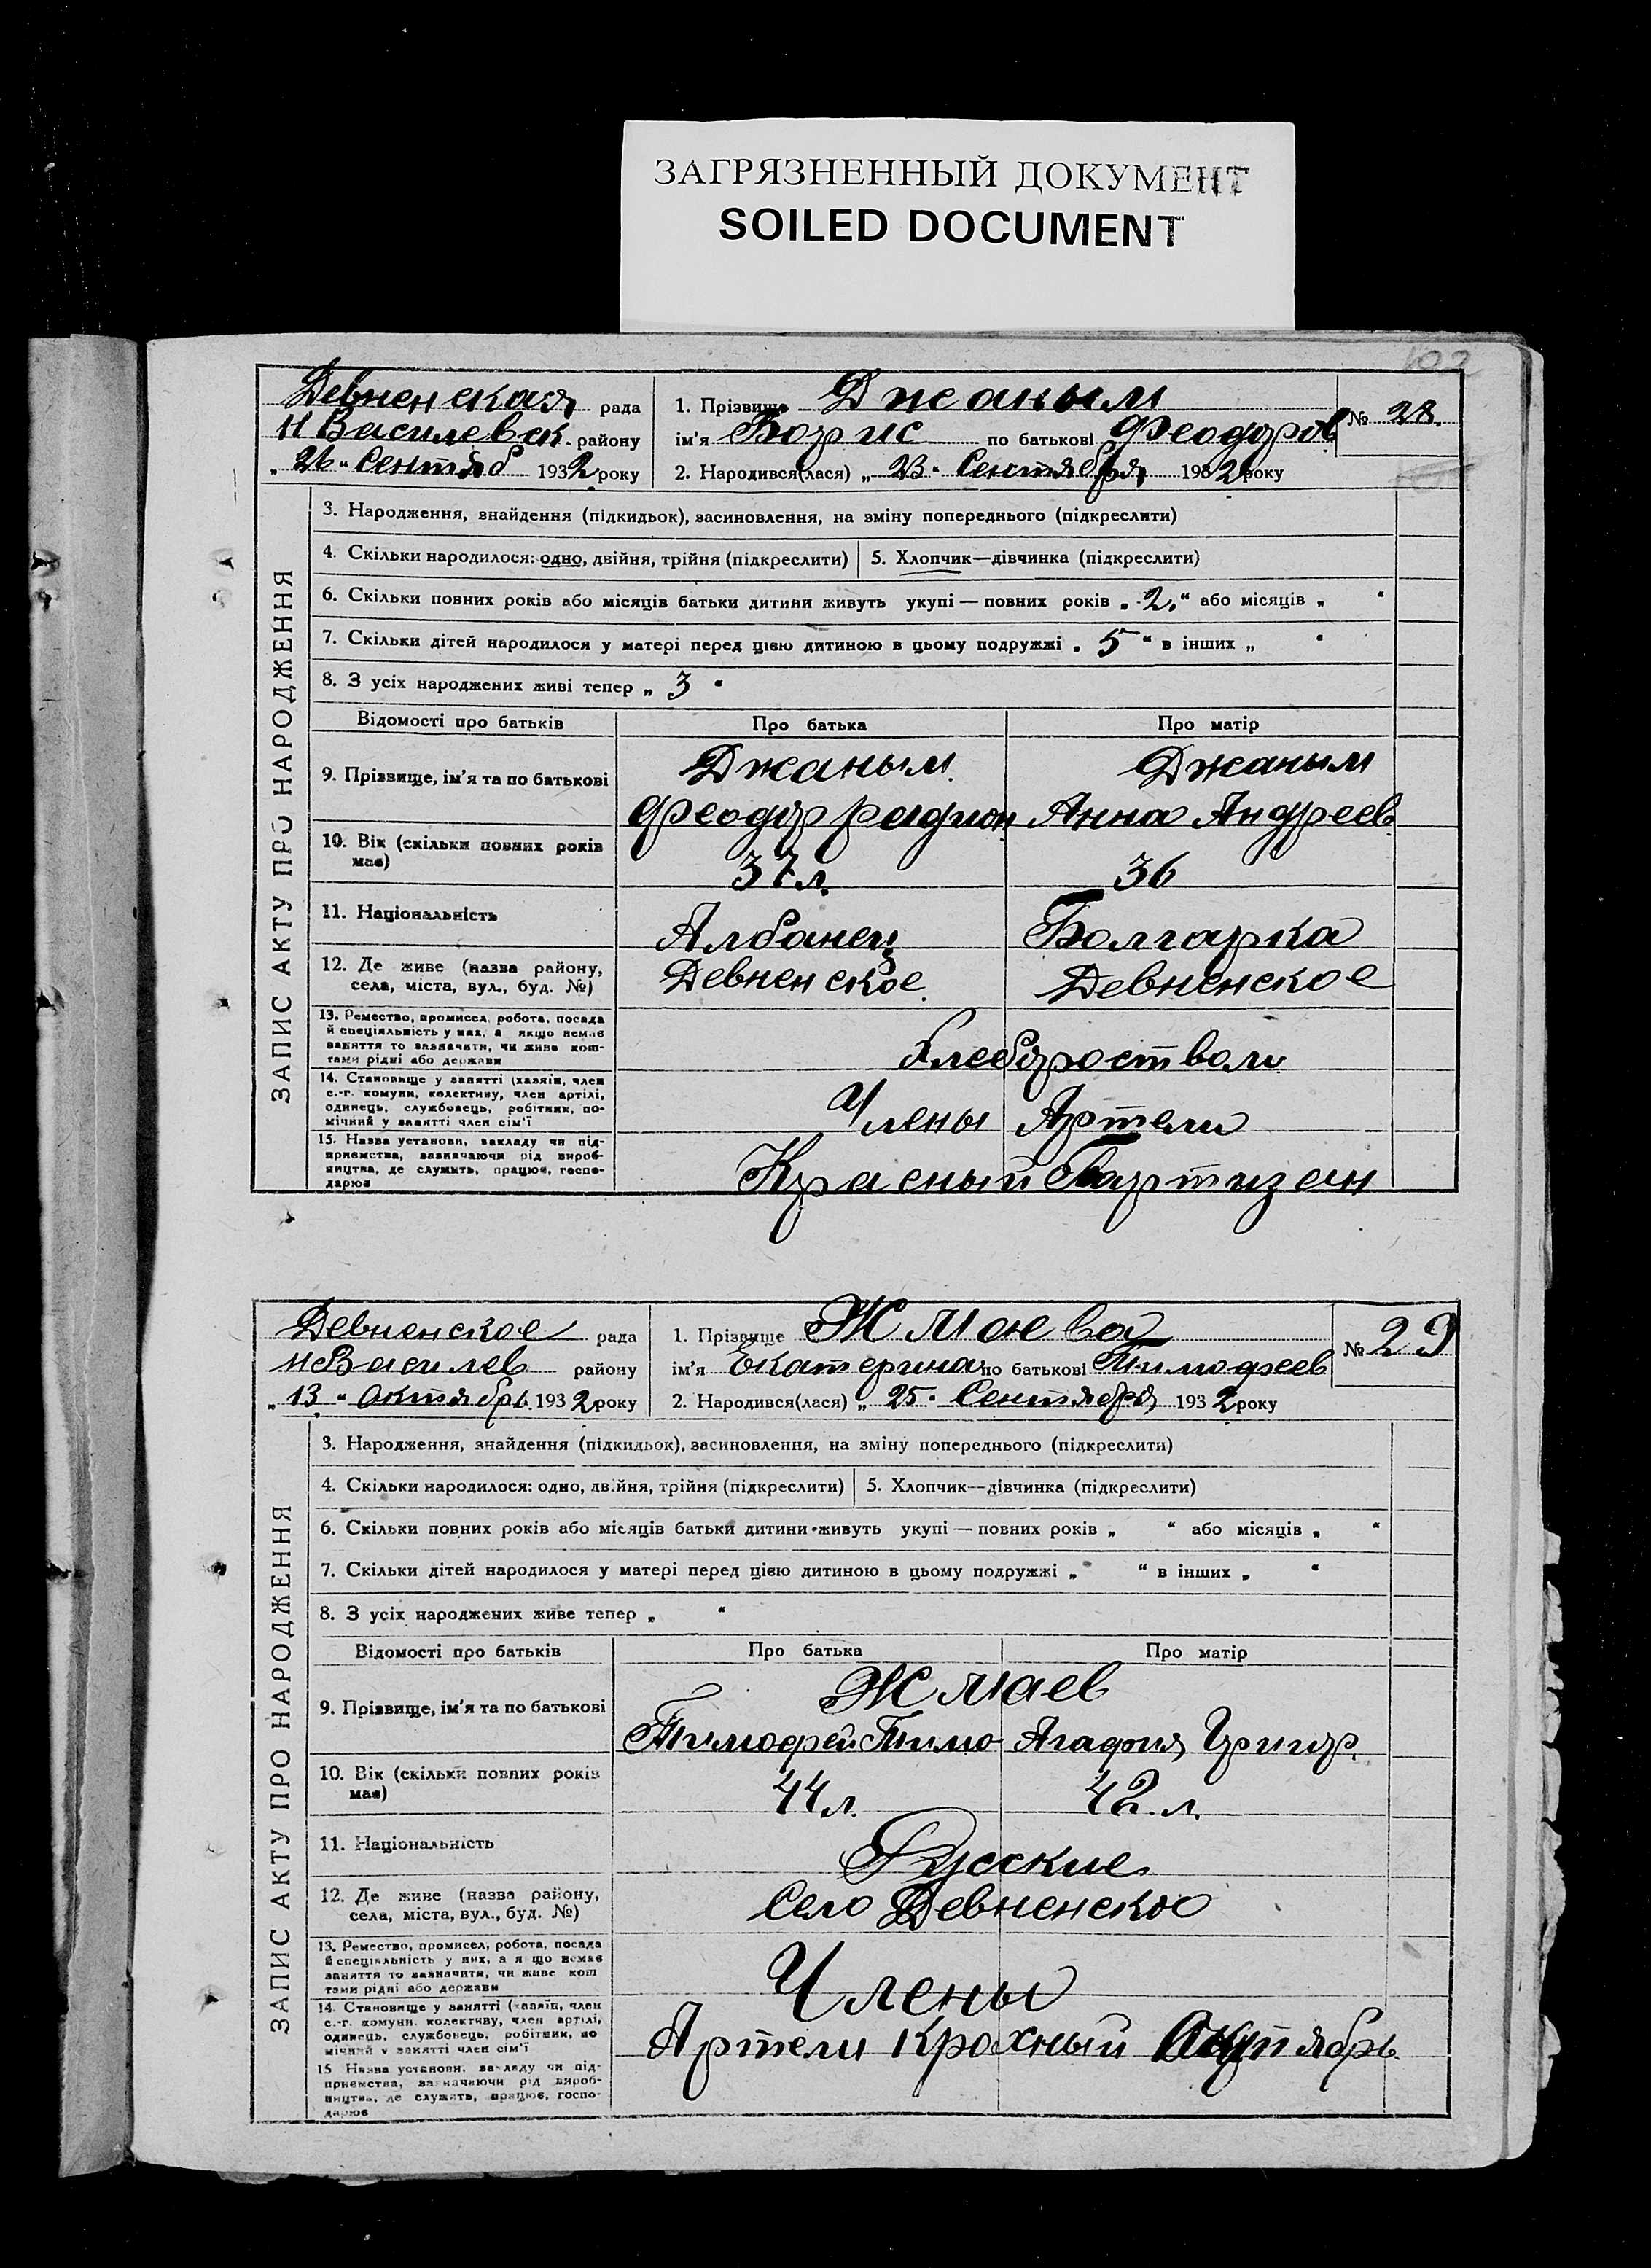 102
ЗАГРЯЗНЕННЫЙ ДОКУМЕНТ
SOILED DOCUMENT
ЗАПИС АКТУ ПРО НАРОДЖЕННЯ
Девненская рада
Н Василевск. району
„ 26 “ Сентяб 1932 року
1. Прізвище Джаным
ім'я Борис по батькові Феодоров
№ 28.
2. Народився(лася) „ 23 “ Сентября 1932 року
3. Народження, знайдення (підкидьок), засиновлення, на зміну попереднього (підкреслити)
4. Скільки народилося: одно, двійня, трійня (підкреслити) 5. Хлопчик—дівчинка (підкреслити)
6. Скільки повних років або місяців батьки дитини живуть укупі — повних років „ 2. “ або місяців „ “
7. Скільки дітей народилося у матері перед цією дитиною в цьому подружжі „ 5 “ в інших „ “
8. З усіх народжених живі тепер „ 3 “
Відомості про батьків Про батька Про матір
9. Прізвище, ім'я та по батькові
Джаным Джаным
Феодор Радион Анна Андреев
10. Вік (скільки повних років
має)
37 л. 36
11. Національність
Албанец Болгарка
12. Де живе (назва району,
села, міста, вул., буд. №)
Девненское Девненское
13. Ремество, промисел, робота, посада
й спеціяльність у них, а якщо немає
заняття то зазначити, чи живе кош-
тами рідні або держави
14. Становище у занятті (хазяїн, член
с.-г. комуни, колективу, член артілі,
одинець, службовець, робітник, по-
мічний у занятті член сім'ї
Члены Артели
15. Назва установи, закладу чи під-
приємства, зазначаючи рід вироб-
ництва, де служить, працює, госпо-
дарює
Красный Партизан
ЗАПИС АКТУ ПРО НАРОДЖЕННЯ
Девненское рада
Н Василев району
„ 13 “ Октябрь 1932 року
1. Прізвище Жмаева
ім'я Екатерина по батькові Тимофеев
№ 29
2. Народився(лася) „ 25 “ Сентября 1932 року
3. Народження, знайдення (підкидьок), засиновлення, на зміну попереднього (підкреслити)
4. Скільки народилося: одно, двійня, трійня (підкреслити) 5. Хлопчик—дівчинка (підкреслити)
6. Скільки повних років або місяців батьки дитини живуть укупі — повних років „ “ або місяців „ “
7. Скільки дітей народилося у матері перед цією дитиною в цьому подружжі „ “ в інших „ “
8. З усіх народжених живе тепер „ “
Відомості про батьків Про батька Про матір
9. Прізвище, ім'я та по батькові
Жмаев
Тимофей Тимо Агафия Григор.
10. Вік (скільки повних років
має)
44 л. 42. л.
11. Національність
Русские
12. Де живе (назва району,
села, міста, вул., буд. №)
Село Девненско
13. Ремество, промисел, робота, посада
й спеціяльність у них, а якщо немає
заняття то зазначити, чи живе кош
тами рідні або держави
Члены
14. Становище у занятті (хазяїн, член
с.-г. комуни, колективу, член артілі,
одинець, службовець, робітник, по
мічний у занятті член сім'ї
Артели Крахный Октябрь
15 Назва установи, закладу чи під-
приємства, зазначаючи рід вироб-
ництва, де служить, працює, госпо-
дарює